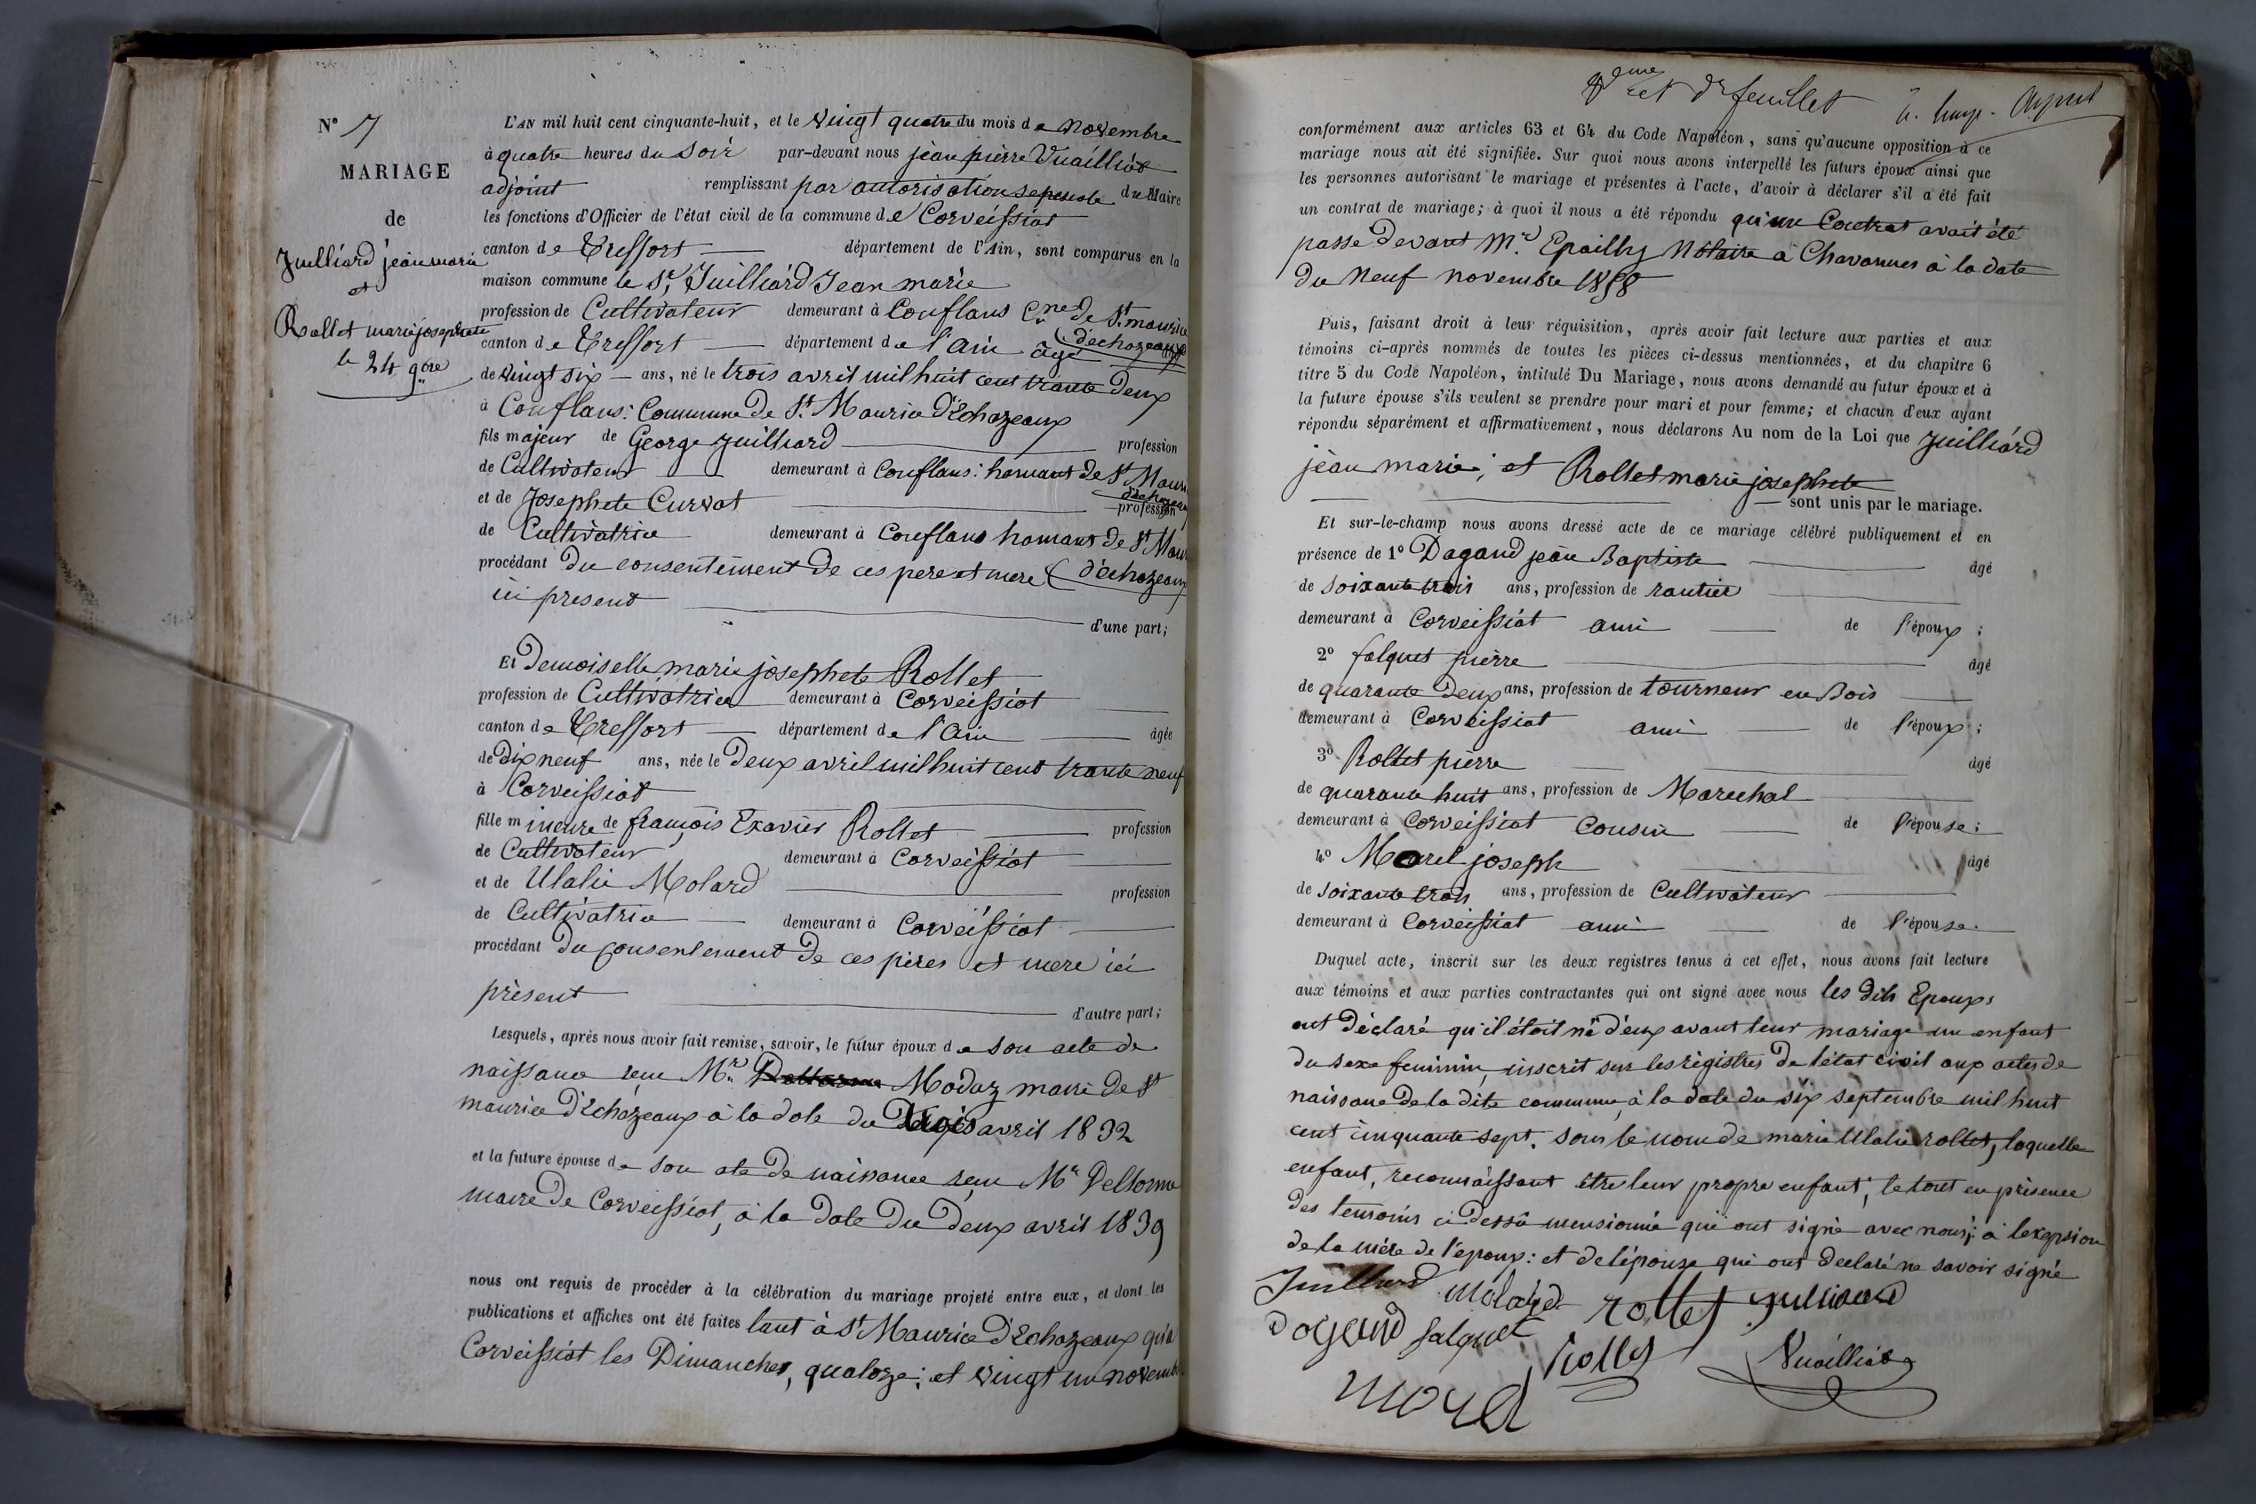 N° 7
MARIAGE
de
Juilliard jean marie
et
Rollet marie josephete
le 24 9bre
L'AN mil huit cent cinquante-huit, et le vingt quatre du mois de novembre
à quatre heures du Soir par-devant nous jean pierre Vuailliot
adjoint remplissant par autorisation du Maire
les fonctions d'Officier de l'état civil de la commune de Corveissiat
canton de Treffort département de l'Ain, sont comparus en la
maison commune le Sr Juilliard Jean marie
profession de Cultivateur demeurant à Conflans Cne de St maurice
d'echazeaux
canton de Treffort département de l'ain âgé
de vingt six ans, né le trois avril mil huit cent trante deux
à Conflans: Commune de St Maurice d'Echazeaux
fils majeur de George juilliard profession
de Cultivateur demeurant à Conflans: hamant de St Mauri
d'echazeau
et de Josephete Curvat profession
de Cultivatrice demeurant à Conflans hamant de St Mau
procédant du consentement de ces pere et mere (d'échazeaux
ici present
d'une part;
Et Demoiselle marie josephete Rollet
profession de Cultivatrice demeurant à Corveissiat
canton de Treffort département de l'ain âgée
de dix neuf ans, née le Deux avril mil huit cent trante neuf
à Corveissiat
fille mineure de françois Exavier Rollet profession
de Cultivateur demeurant à Corveissiat
et de Ulalie Molard profession
de Cultivatrice demeurant à Corveissiat
procédant du consentement de ces pères et mere ici
présent
d'autre part;
Lesquels, après nous avoir fait remise, savoir, le futur époux de son acte de
naissance reçu Mr Modaz maire de St
maurice d'Echazeaux à la date du trois avril 1832
et la future épouse de son ate de naissance reçu Mr Delorme
maire de Corveissiat, à la date du deux avril 1839
nous ont requis de procéder à la célébration du mariage projeté entre eux, et dont les
publications et affiches ont été faites tant à St Maurice d'Echazeaux qu'à
Corveissiat les Dimanches, quatorze; et vingt un novemb
8eme et dr feuillet
conformément aux articles 63 et 64 du Code Napoléon, sans qu'aucune opposition à ce
mariage nous ait été signifiée. Sur quoi nous avons interpellé les futurs époux ainsi que
les personnes autorisant le mariage et présentes à l'acte, d'avoir à déclarer s'il a été fait
un contrat de mariage; à quoi il nous a été répondu qu'un Contrat avait été
passé devant Mr Epailly Notaire à Chavannes à la date
du Neuf novembre 1858
Puis, faisant droit à leur réquisition, après avoir fait lecture aux parties et aux
témoins ci-après nommés de toutes les pièces ci-dessus mentionnées, et du chapitre 6
titre 5 du Code Napoléon, intitulé Du Mariage, nous avons demandé au futur époux et à
la future épouse s'ils veulent se prendre pour mari et pour femme; et chacun d'eux ayant
répondu séparément et affirmativement, nous déclarons Au nom de la Loi que juilliard
jean marie; et Rollet marie josephete
sont unis par le mariage.
Et sur-le-champ nous avons dressé acte de ce mariage célébré publiquement et en
présence de 1° Dagand jean Baptiste âgé
de soixante trois ans, profession de rantier
demeurant à Corveissiat ami de l'époux;
2° falquet pierre âgé
de quarante deux ans, profession de tourneur en Bois
demeurant à Corveissiat ami de l'époux;
3° Rollet pierre âgé
de quarante huit ans, profession de Marechal
demeurant à Corveissiat cousin de l'épouse;
4° Morel joseph âgé
de soixante trois ans, profession de Cultivateur
demeurant à Corveissiat ami de l'épouse.
Duquel acte, inscrit sur les deux registres tenus à cet effet, nous avons fait lecture
aux témoins et aux parties contractantes qui ont signé avec nous les dits Epoux,
ont déclaré qu'il était né d'eux avant leur mariage un enfant
du sexe feminin, inscrit sur les régistres de l'état civil aux actes de
naissance de la dite commune, à la date du six septembre mil huit
cent cinquante sept, sous le nom de marie Ulalie rollet, laquelle
enfant, reconnaissant être leur propre enfant, le tout en présence
des temoins ci dessû mensionné qui ont signé avec nous; à l'exepsion
de la mère de l'époux: et de l'épouse qui ont declaré ne savoir signé
Juilliard molard rollet juilliard
dagand falquet rollet Vuailliot
morel